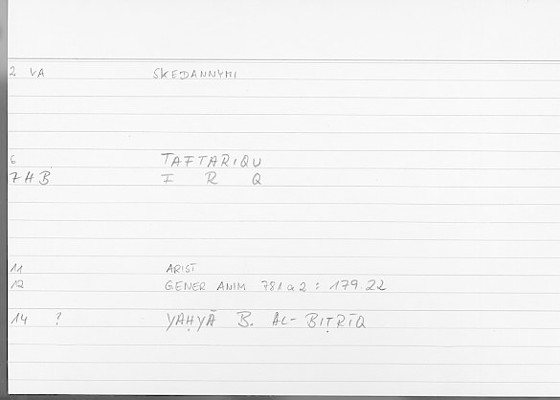 2 VA SKEDANNYMI
6 TAFTARIQU
7 HB I R Q
11 ARIST
12 GENER ANIM 781a2 : 179.22
14 ? YAḤYĀ B. AL-BIṬRĪQ